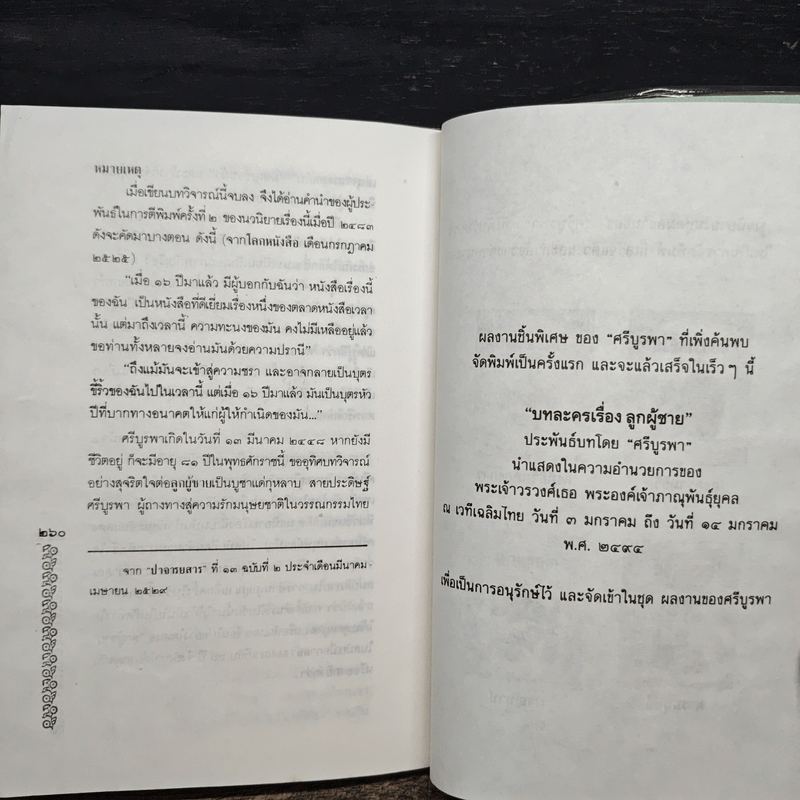 หมายเหตุ
เมื่อเขียนบทวิจารณ์นี้จบลง จึงได้อ่านคำนำของผู้ประ-
พันธ์ในการตีพิมพ์ครั้งที่ ๒ ของนวนิยายเรื่องนี้เมื่อปี ๒๔๘๓
ดังจะคัดมาบางตอน ดังนี้ (จากโลกหนังสือ เดือนกรกฎาคม
๒๕๒๕)
“เมื่อ ๑๖ ปีมาแล้ว มีผู้บอกกับฉันว่า หนังสือเรื่องนี้
ของฉัน เป็นหนังสือที่ดีเยี่ยมเรื่องหนึ่งของตลาดหนังสือเวลา
นั้น แต่มาถึงเวลานี้ ความทะนงของมัน คงไม่มีเหลืออยู่แล้ว
ขอท่านทั้งหลายจงอ่านมันด้วยความปรานี”
“ถึงแม้มันจะเข้าสู่ความชรา และอาจกลายเป็นบุตร
ขี้ริ้วของฉันไปในเวลานี้ แต่เมื่อ ๑๖ ปีมาแล้ว มันเป็นบุตรหัว
ปีที่บากทางอนาคตให้แก่ผู้ให้กำเนิดของมัน...”
ศรีบูรพาเกิดในวันที่ ๑๓ มีนาคม ๒๔๔๘ หากยังมี
ชีวิตอยู่ ก็จะมีอายุ ๘๑ ปีในพุทธศักราชนี้ ขออุทิศบทวิจารณ์
อย่างสุจริตใจต่อลูกผู้ชายเป็นบูชาแด่กุหลาบ สายประดิษฐ์
ศรีบูรพา ผู้ถางทางสู่ความรักมนุษยชาติในวรรณกรรมไทย
๒๖๐
จาก “ปาจารยสาร” ที่ ๑๓ ฉบับที่ ๒ ประจำเดือนมีนาคม-
เมษายน ๒๕๒๙
ผลงานชิ้นพิเศษ ของ “ศรีบูรพา” ที่เพิ่งค้นพบ
จัดพิมพ์เป็นครั้งแรก และจะแล้วเสร็จในเร็วๆ นี้
“บทละครเรื่อง ลูกผู้ชาย”
ประพันธ์บทโดย “ศรีบูรพา”
นำแสดงในความอำนวยการของ
พระเจ้าวรวงศ์เธอ พระองค์เจ้าภาณุพันธุ์ยุคล
ณ เวทีเฉลิมไทย วันที่ ๓ มกราคม ถึง วันที่ ๑๔ มกราคม
พ.ศ. ๒๔๙๔
เพื่อเป็นการอนุรักษ์ไว้ และจัดเข้าในชุด ผลงานของศรีบูรพา